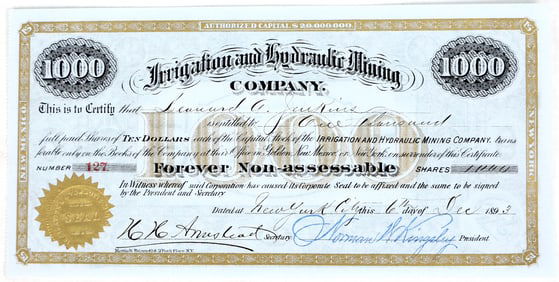 AUTHORIZED CAPITAL $20,000,000.
1000 Irrigation and Hydraulic Mining 1000
COMPANY.
This is to Certify that Leonard C. Jenkins
is entitled to One Thousand
full paid Shares of TEN DOLLARS each of the Capital Stock of the IRRIGATION AND HYDRAULIC MINING COMPANY, trans
ferable only on the Books of the Company at their Offices in Golden, New Mexico, or New York, on surrender of this Certificate
NUMBER 127. Forever Non-assessable SHARES 1000
In Witness whereof said Corporation has caused its Corporate Seal to be affixed and the same to be signed
by the President and Secretary
Dated at New York City this 6th day of Dec 1893
H. H. Armstead Secretary. Norman W. Kingsley President.
NEW MEXICO.
1000
SEAL